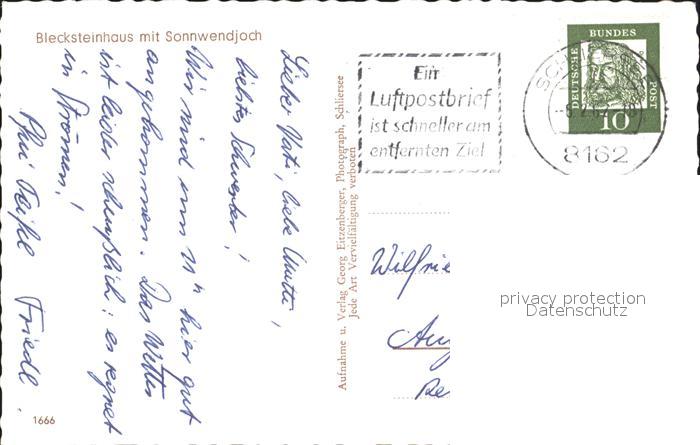 Blecksteinhaus mit Sonnwendjoch
Lieber Vati, liebe Mutti,
liebste Schwester!
Wir sind um 11h hier gut
angekommen. Das Wetter
ist leider scheußlich: es regnet
in Strömen!
Pfui Teifel Friedl.
1666
Aufnahme u. Verlag Georg Eitzenberger, Photograph, Schliersee
Jede Art Vervielfältigung verboten
Ein
Luftpostbrief
ist schneller am
entfernten Ziel
DEUTSCHE BUNDES POST
10
8162
Wilfrie
Aug
Re
privacy protection
Datenschutz